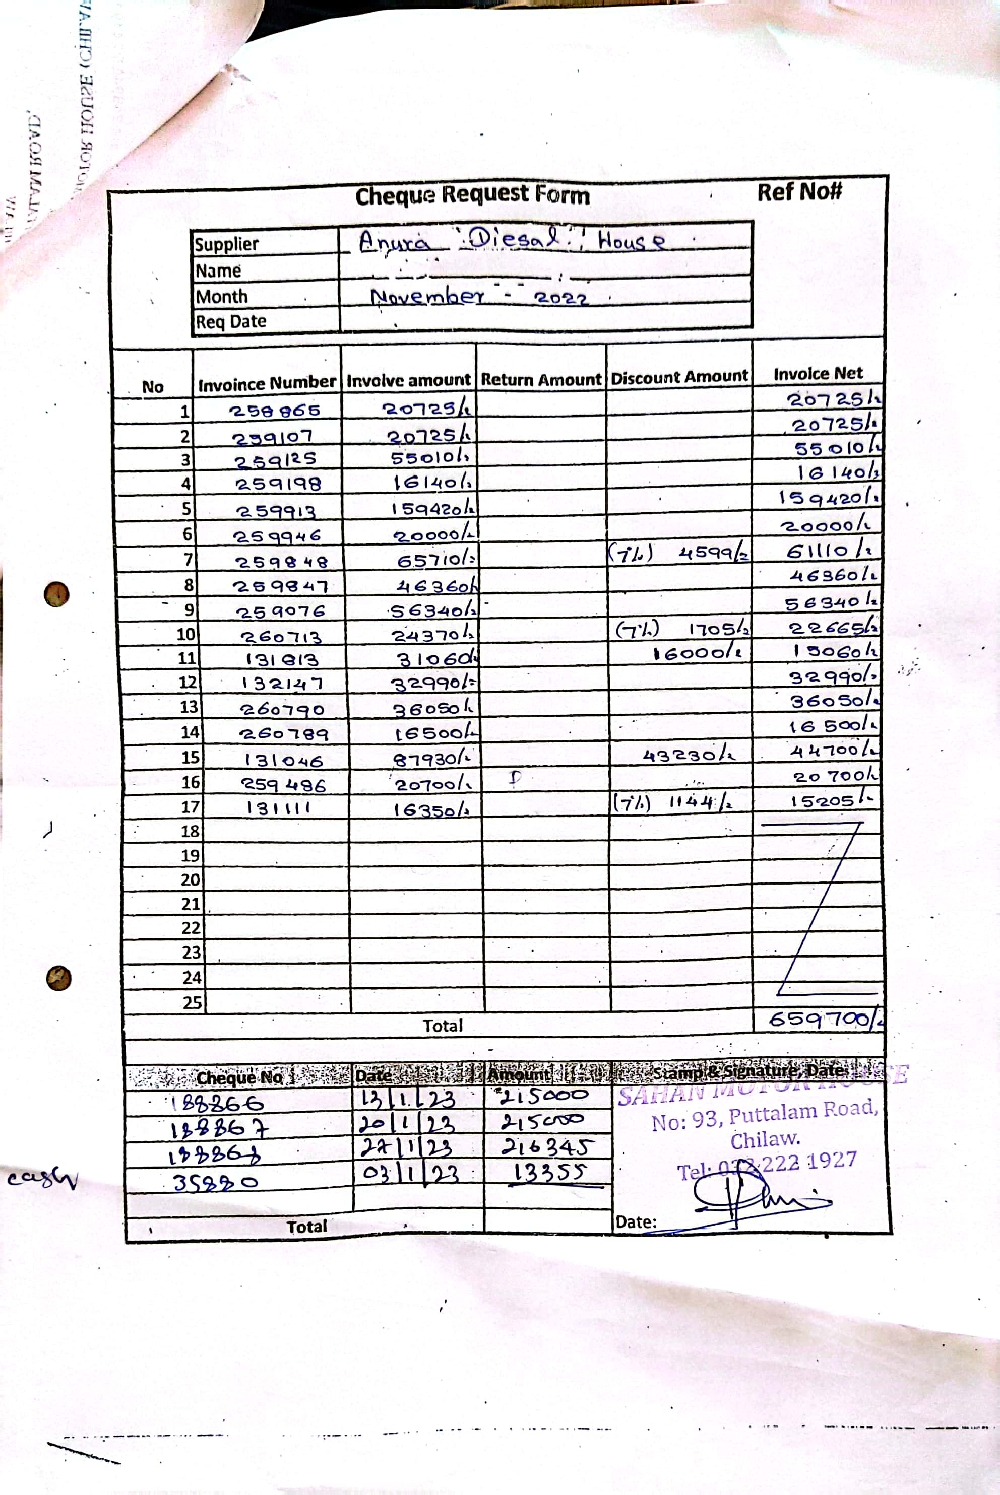 Cheque Request Form Ref No#
Supplier Anura Diesal House
Name
Month November - 2022
Req Date
No Invoince Number Involve amount Return Amount Discount Amount Invoice Net
1 258865 20725/- 20725/-
2 259107 20725/- 20725/-
3 259125 55010/- 55010/-
4 259198 16140/- 16140/-
5 259913 159420/- 159420/-
6 259946 20000/- 20000/-
7 259848 65710/- (7%) 4599/- 61110/-
8 259847 46360/- 46360/-
9 259076 56340/- 56340/-
10 260713 24370/- (7%) 1705/- 22665/-
11 131813 31060/- 16000/- 15060/-
12 132147 32990/- 32990/-
13 260790 36050/- 36050/-
14 260789 16500/- 16500/-
15 131046 87930/- 43230/- 44700/-
16 259486 20700/- 20700/-
17 131111 16350/- (7%) 1144/- 15205/-
18
19
20
21
22
23
24
25
Total 659700/-
Cheque No Date Amount Stamp & Signature, Date
188866 13/1/23 215000
188867 20/1/23 215000
188868 27/1/23 216345
cash 35880 03/1/23 13355
SAHAN MOTOR HOUSE
No: 93, Puttalam Road,
Chilaw.
Tel: 032 222 1927
Total Date: